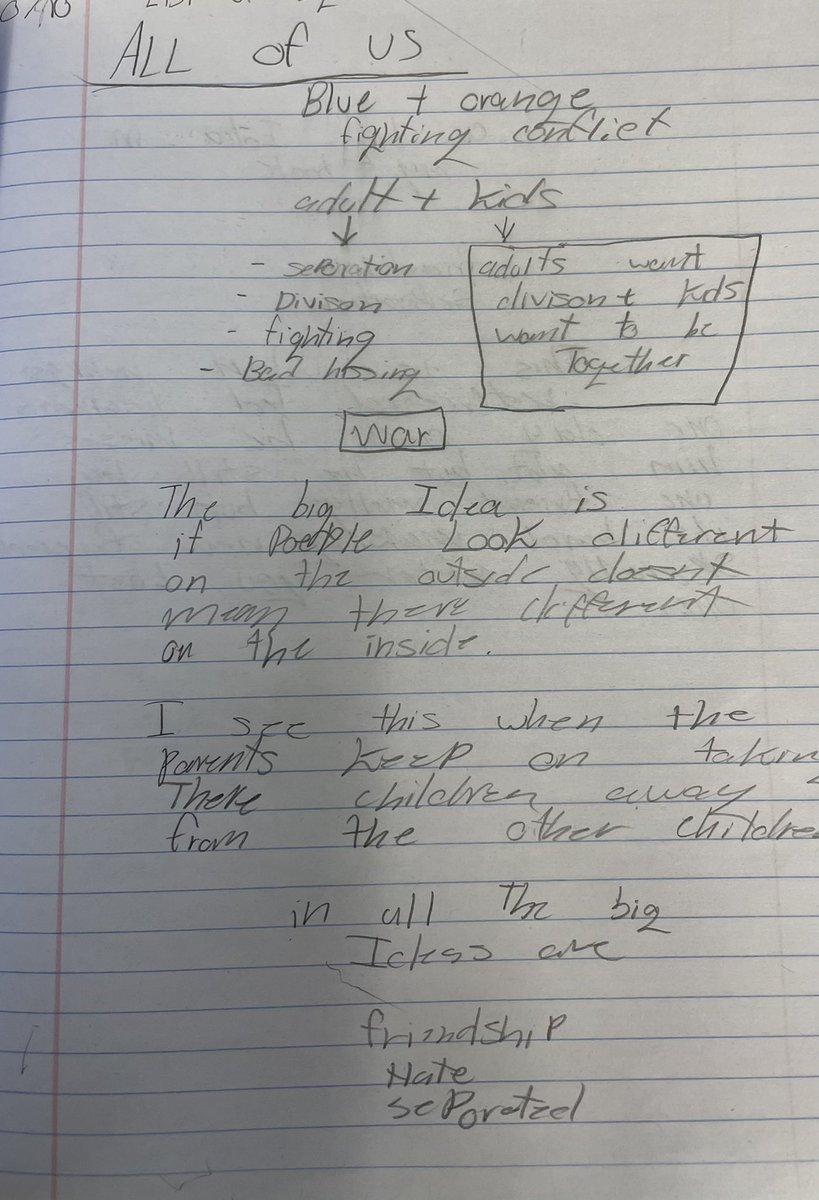 ALL of us
Blue + orange
fighting conflict
adult + kids
- seporation
- Divison
- fighting
- Bad hosing
adults want
divison + kds
want to be
Together
war
The big Idea is
if Poeple Look different
on the outside doesnt
mean there different
on the inside.
I see this when the
Parents keep on takin
There children away
from the other childre
in all The big
are
friendship
Hate
sePoratzed